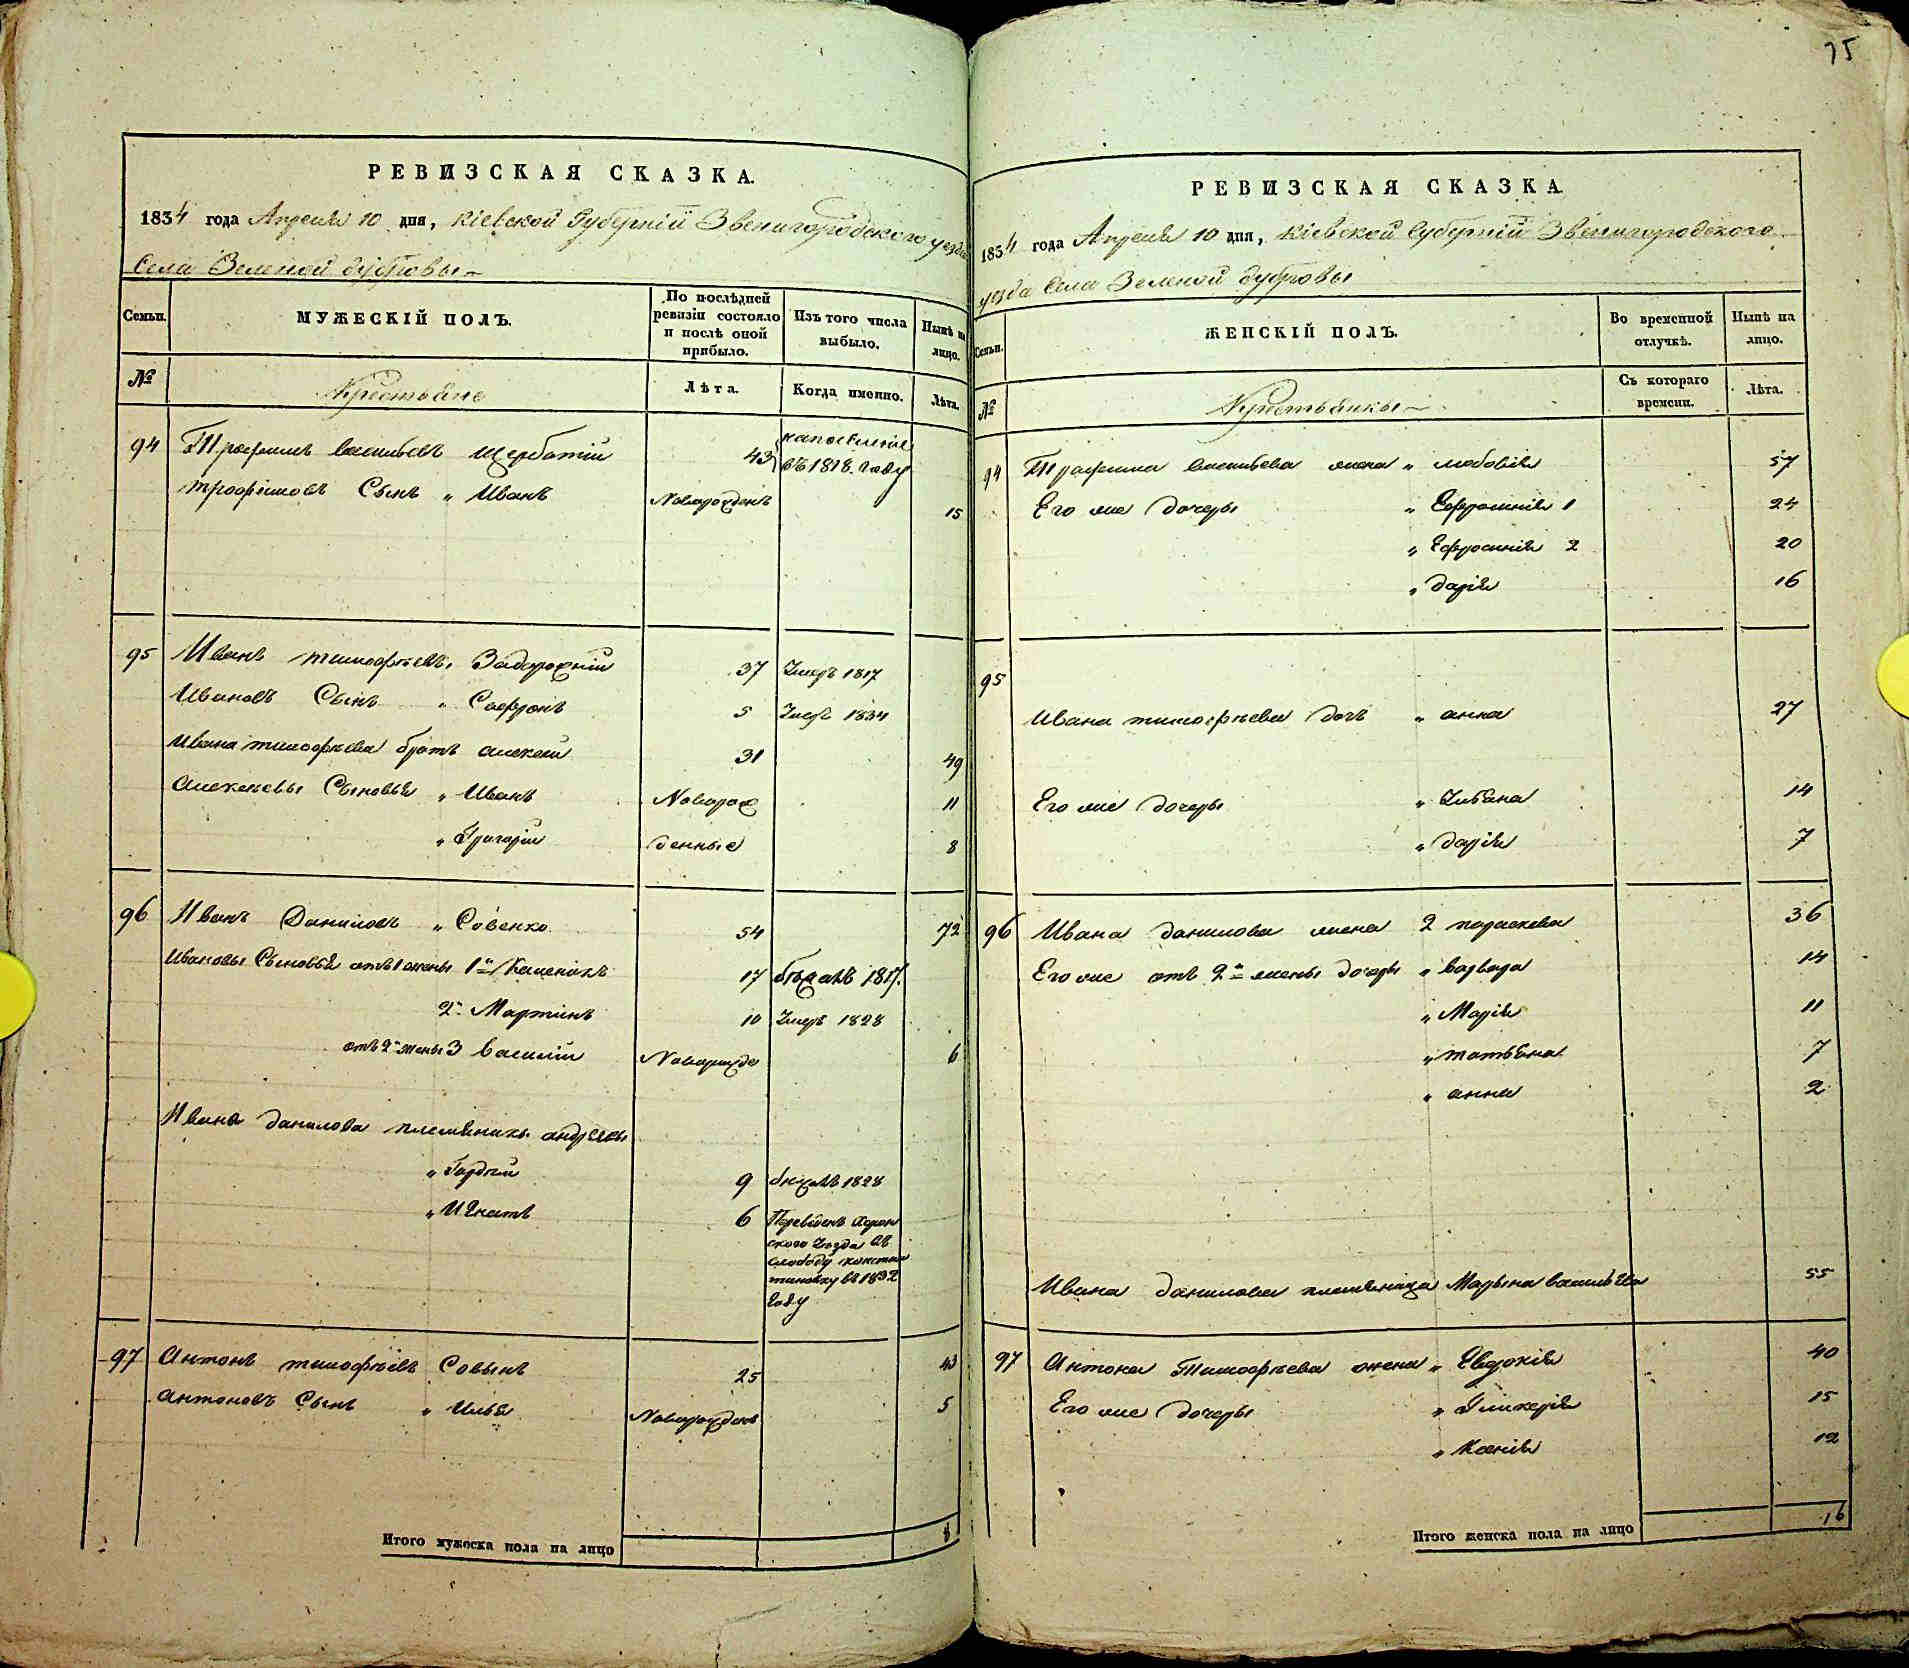 75
РЕВИЗСКАЯ СКАЗКА.
1834 года Апреля 10 дня, Кіевской Губерніи Звенигородского уезда
Села Зеленой дубровы
Семьи. МУЖЕСКІЙ ПОЛЪ. По послѣдней ревизіи состояло и послѣ оной прибыло. Изъ того числа выбыло. Нынѣ на лицо.
№ Крестьяне Лѣта. Когда именно. Лѣта.
94 Трофимъ васильевъ Щербатій 43 въ 1818 году
трофимовъ Сынъ „ Иванъ Новорожденъ 15
95 Иванъ тимофѣевъ Задорожній 37 Умеръ 1817
Ивановъ Сынъ „ Софронъ 5 Умеръ 1834
Ивана тимофѣева братъ алексей 31 49
алексѣевы Сыновья „ Иванъ Новорож 11
„ Григорій денные 8
96 Иванъ Даниловъ „ Совенко 54 72
Ивановы Сыновья отъ 1 жены 1й 17 бѣжалъ 1817.
2й Мартинъ 10 Умеръ 1828
отъ 2й жены 3 василій Новорожде 6
Ивана данилова племянники андреевы
„ Гордѣй 9 бежалъ 1828
„ Игнатъ 6 Переведенъ Херсон
ского Уезда въ
слободу констан
тиновку въ 1832
году
97 Антонъ тимофѣевъ Совынъ 25 43
антоновъ Сынъ „ Илья Новорожденъ 5
Итого мужеска пола на лицо 8
РЕВИЗСКАЯ СКАЗКА.
1834 года Апреля 10 дня, Кіевской Губерніи Звенигородского
уезда Села Зеленой дубровы
Семьи. ЖЕНСКІЙ ПОЛЪ. Во временной отлучкѣ. Нынѣ на лицо.
№ Крестьянки Съ котораго времени. Лѣта.
94 Трофима васильева жена „ любовія 57
Его же дочеры „ Ефросинія 1 24
„ Ефросинія 2 20
„ дарія 16
95
Ивана тимофѣева дочь „ анна 27
Его же дочеры „ Уліана 14
„ дарія 7
96 Ивана данилова жена 2 параскева 36
Его же отъ 2й жены дочеры „ варвара 14
„ Марія 11
„ татьяна 7
„ анна 2
Ивана данилова племянница Марына васильева 55
97 Антона Тимофѣева жена „ Евдокія 40
Его же дочеры „ Гликерія 15
„ Ксенія 12
Итого женска пола на лицо 16